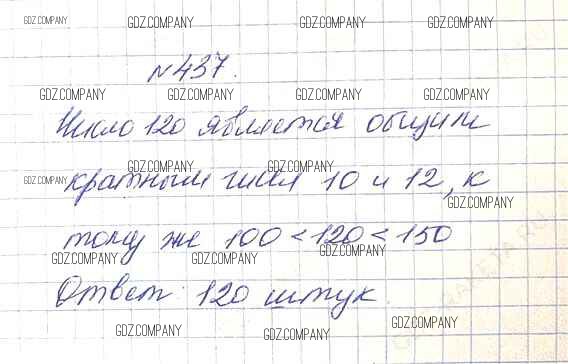 GDZ.COMPANY GDZ.COMPANY GDZ.COMPANY GDZ.COMPANY
№437.
GDZ.COMPANY GDZ.COMPANY GDZ.COMPANY GDZ.COMPANY
Число 120 является общим
GDZ.COMPANY GDZ.COMPANY
GDZ.COMPANY кратным чисел 10 и 12, к
GDZ.COMPANY
тому же 100 < 120 < 150
GDZ.COMPANY GDZ.COMPANY GDZ.COMPANY
Ответ: 120 штук.
GDZ.COMPANY GDZ.COMPANY GDZ.COMPANY